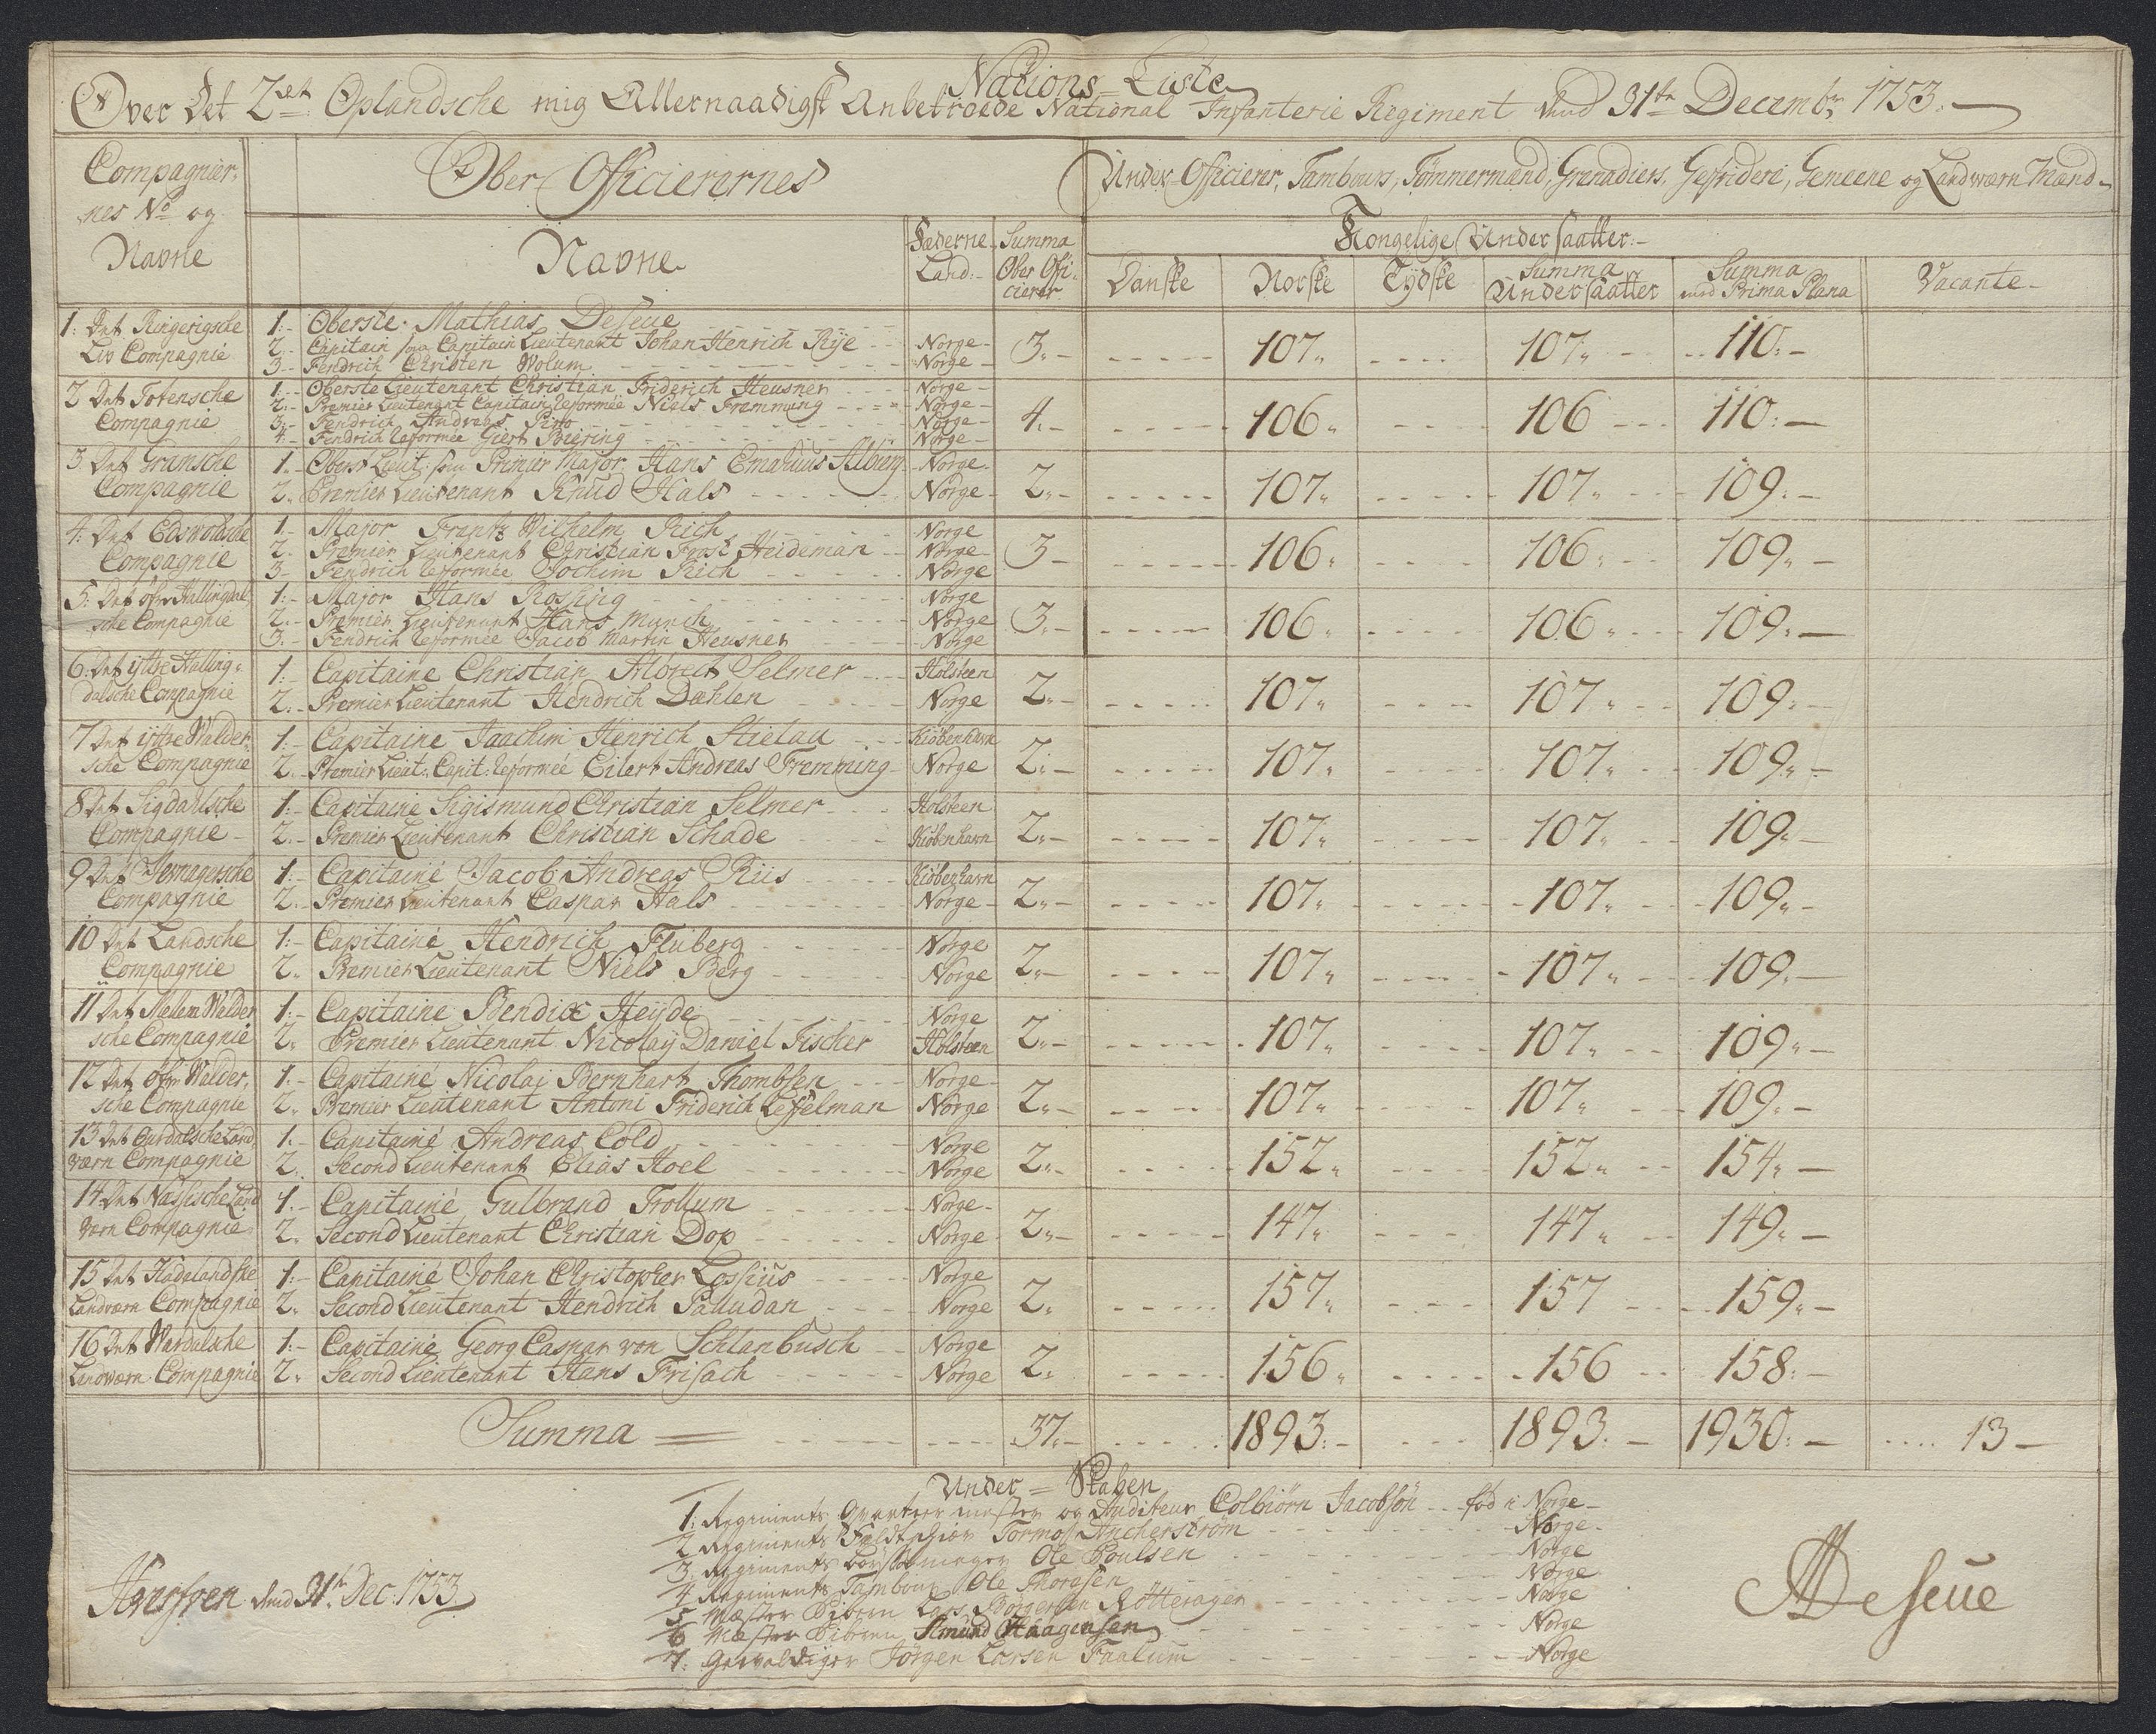 Nations = Liste
Over Det 2det Oplandsche mig Allernaadigst Anbetroede National Infanterie Regiment dend 31te Decembr 1753.
Compagnier:
nes No og
Navne
Ober Officierernes
Under Officierer, Tambours, Tømmermænd, Grenadiers, Gefridere, Gemeene og Landværn Mænd
Navne
Fæderne Land:
Summa Ober Officierer
Kongelige Under saatter:
Danske Norske Tydske Summa Undersaatter Summa med Prima Plana Vacante
1: Det Ringerigsche Liv Compagnie
1: Oberste Mathias Deseue
2. Capitain som Capitain Lieutenant Johan Henrich Rije Norge
3 Fendrich Christen Wolum Norge
3. 107. 107. 110.
2 Det Totensche Compagnie
1. Oberste Lieutenant Christian Friderich Heusner Norge
2. Premier Lieutenant Capitain Reformée Niels Fremming Norge
3. Fendrich Andreas Norge
4. Fendrich Reformée Giert Biering Norge
4. 106. 106 110.
3 Det Gransche Compagnie
1. Oberst Lieut: som Primier Major Hans Emahuus Norge
2. Premier Lieutenant Knud Hals Norge
2. 107. 107. 109.
4: Det Edswoldsche Compagnie
1. Major Frantz Wilhelm Rich Norge
2. Premier Lieutenant Christian Frost Heideman Norge
3. Fendrich Reformée Jochim Rich Norge
3 106. 106. 109.
5: Det øfre Hallingdalsche Compagnie
1: Major Hans Rosing Norge
2. Premier Lieutenant Hans Munch Norge
3. Fendrich Reformée Jacob Martin Heusner Norge
3. 106. 106. 109.
6: Det ijttre Hallingdalsche Compagnie
1: Capitaine Christian Albrect Selmer Holsteen
2. Premier Lieutenant Hendrich Dæhlen Norge
2. 107. 107. 109.
7 Det ijttre Waldersche Compagnie
1: Capitaine Jaachim Henrich Stielau Kiøbenhavn
2. Premier Lieut: Capit: Reformeé Eilert Andreas Fremming Norge
2. 107. 107. 109.
8 Det Sigdahlsche Compagnie
1: Capitaine Sigismund Christian Selmer Holsteen
2. Premier Lieutenant Christian Schade Kiøbenhavn
2. 107. 107. 109.
9 Det Jevnagersche Compagnie
1: Capitaine Jacob Andreas Riis Kiøbenhavn
2. Premier Lieutenant Caspar Hals Norge
2. 107. 107. 109.
10 Det Landsche Compagnie
1: Capitaine Hendrich Fluberg Norge
2. Premier Lieutenant Niels Berg Norge
2. 107. 107. 109.
11 Det Walder sche Compagnie
1: Capitaine Bendix Heijde Norge
2. Premier Lieutenant Nicolaij Daniel Fischer Holsteen
2. 107. 107. 109.
12 Det øfre Waldersche Compagnie
1. Capitaine Nicolai Bernhart Thombsen Norge
2. Premier Lieutenant Antoni Friderich Leffelman Norge
2. 107. 107. 109.
13 Det Landværn Compagnie
1. Capitaine Andreas Cold Norge
2. Second Lieutenant Elias Hoel Norge
2. 152. 152. 154.
14 Det Næssesche Landværn Compagnie
1. Capitaine Gulbrand Trollum Norge
2. Second Lieutenant Christian Dop Norge
2. 147. 147. 149.
15 Det Hadelandske Landværn Compagnie
1: Capitaine Johan Christopher Lossius Norge
2. Second Lieutenant Hendrich Palludan Norge
2. 157. 157 159.
16 Det Wardalsche Landværn Compagnie
1: Capitaine Georg Caspar von Schlanbusch Norge
2. Second Lieutenant Hans Frisach Norge
2. 156. 156 158.
Summa = 37. 1893. 1893. 1930. 13
Under = Staben
1: Regiments Qvarteermester og Auditeur Colbiørn Jacobsøn fød i Norge
2 Regiments Feldtskiær Tormos Ancherstrøm Norge
3 Regiments Ole Poulsen Norge
4 Regiments Tambour Ole Thoresen Norge
5 Mæster Piberen Lars Borgersen Røtteragen Norge
6 Mæster Piberen Amund Haagensen Norge
7. Gevaldiger Jørgen Larsen Faalum Norge
dend 31te Dec: 1753
MDeseue